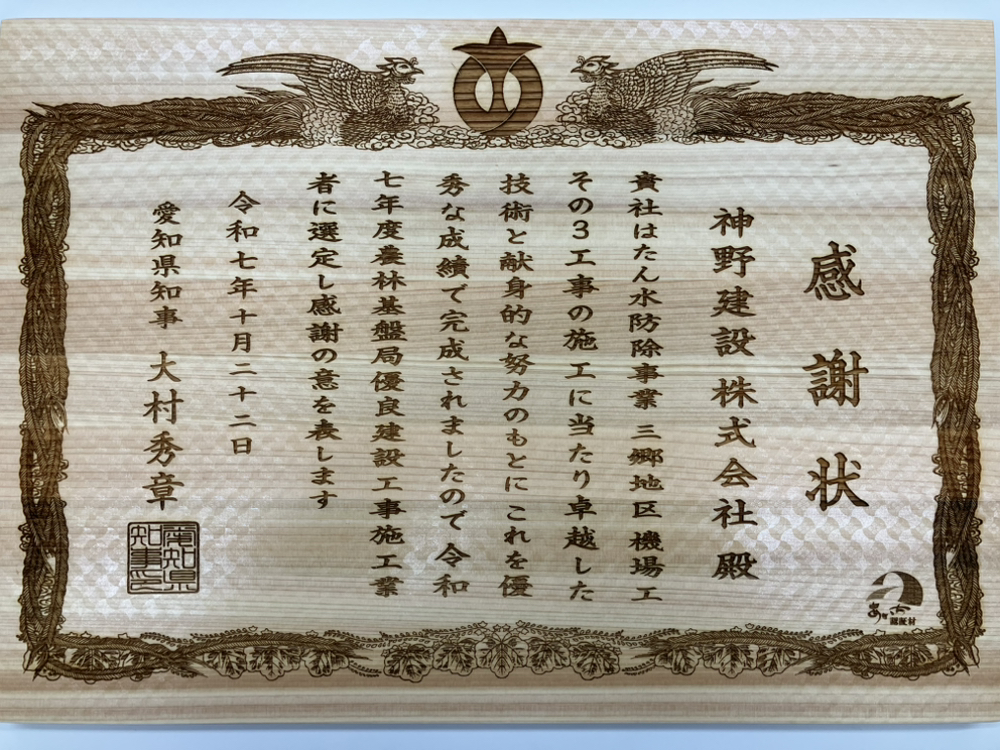 感謝状
神野建設株式会社 殿
貴社はたん水防除事業 三郷地区 機場工
その3工事の施工に当たり卓越した
技術と献身的な努力のもとに これを優
秀な成績で完成されましたので 令和
七年度農林基盤局優良建設工事施工業
者に選定し感謝の意を表します
令和七年十月二十二日
愛知県知事 大村秀章
愛知県
知事之印
認証材